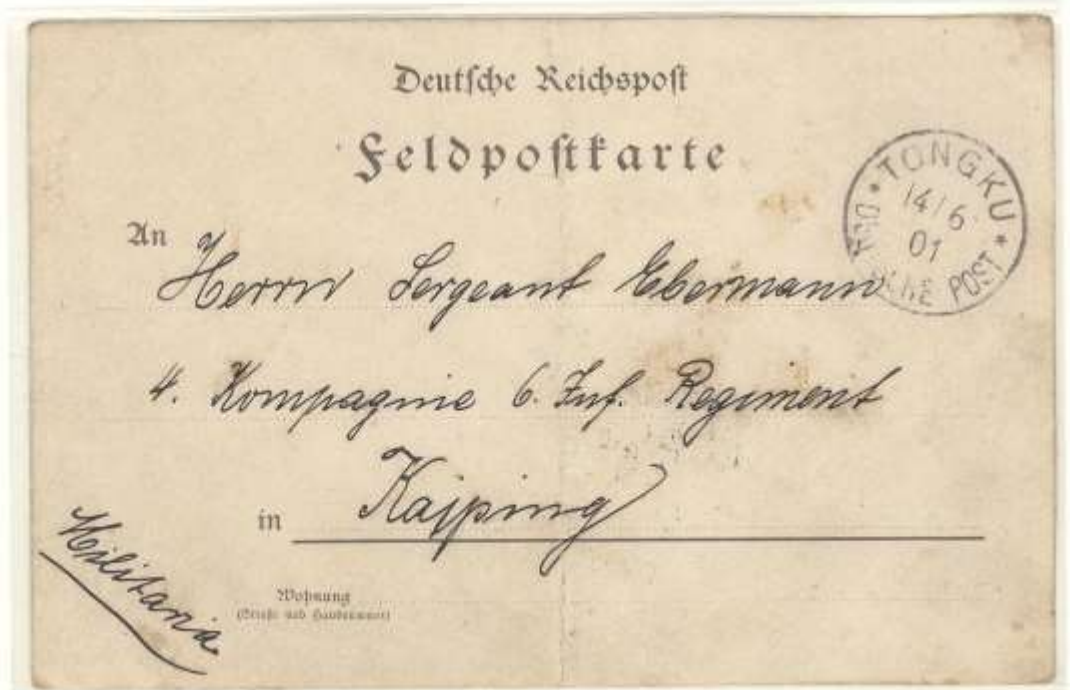 Deutsche Reichspost
Feldpostkarte
* TONGKU *
14/6
01
DEUTSCHE POST
An
Herrn Sergeant Ebermann
4. Kompagnie 6. Inf. Regiment
in Kaiping
Militaria
Wohnung
(Straße und Hausnummer)